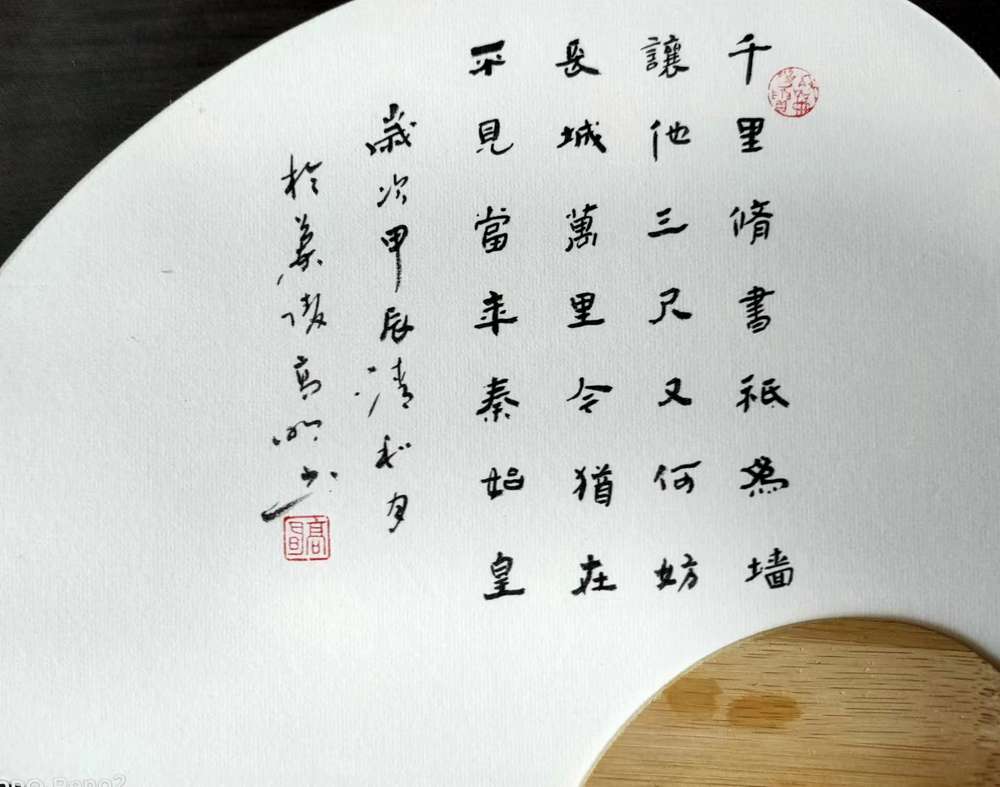 千里脩書祇為墙
讓他三尺又何妨
長城萬里今猶在
不見當年秦始皇
歲次甲辰清和月
於陵高明书
Reno2